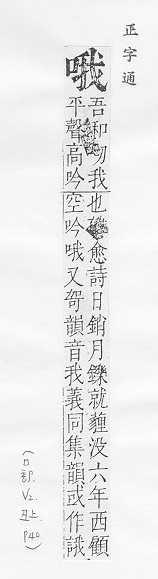 正字通
哦
吾和切我也愈詩日銷月鑠就薶没六年西顧
平聲高吟空吟哦又哿韻音我義同集韻或作誐
(口部. V2. 丑上. P40.)